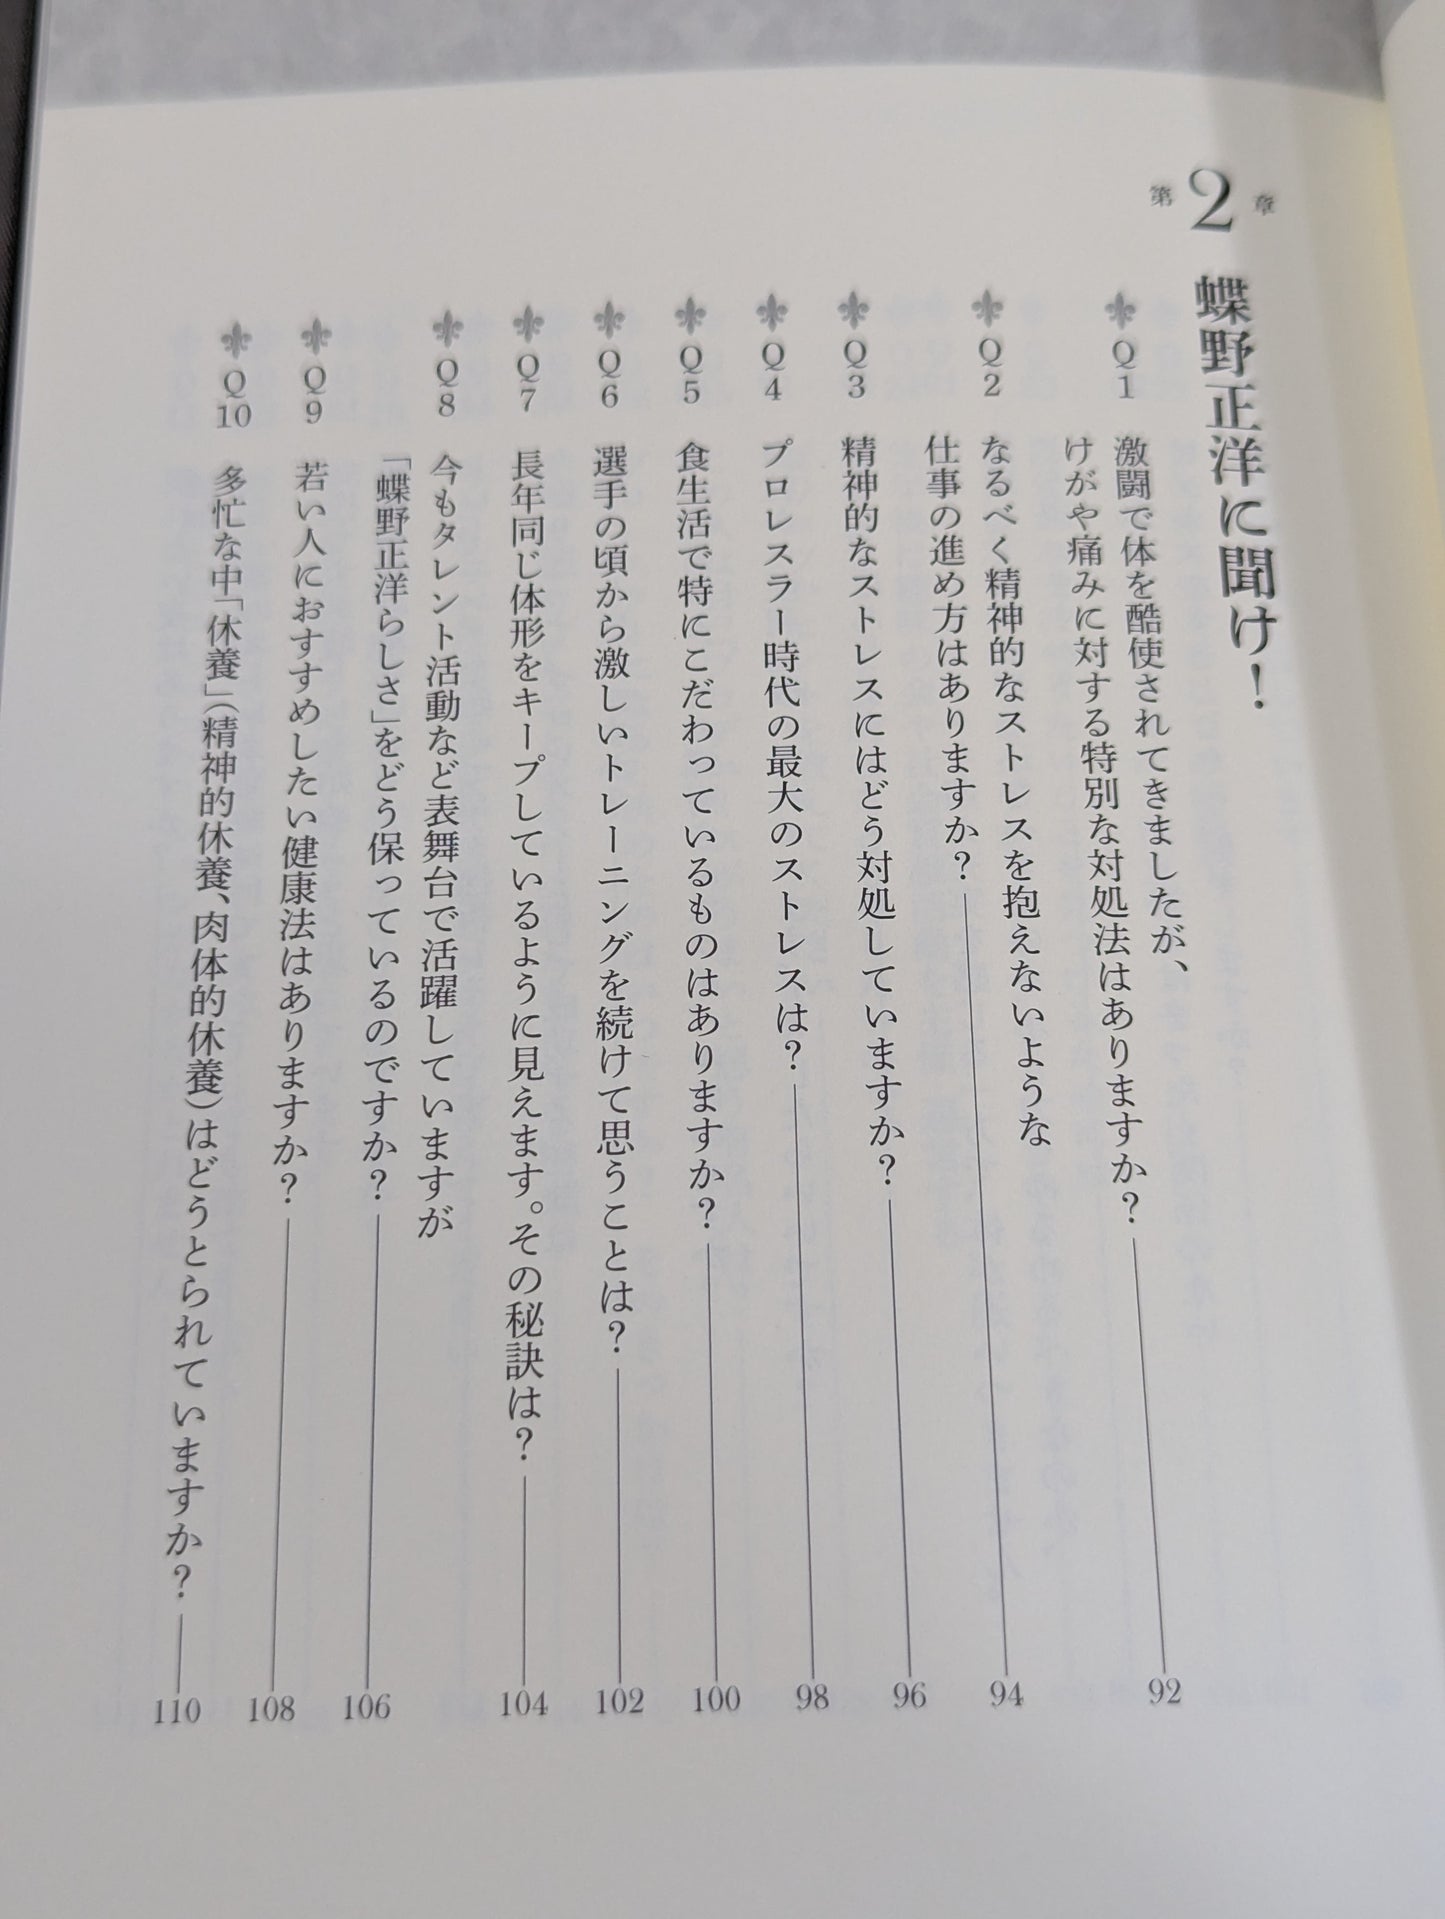 第2章 蝶野正洋に聞け！
Q1 激闘で体を酷使されてきましたが、
けがや痛みに対する特別な対処法はありますか？ 92
Q2 なるべく精神的なストレスを抱えないような
仕事の進め方はありますか？ 94
Q3 精神的なストレスにはどう対処していますか？ 96
Q4 プロレスラー時代の最大のストレスは？ 98
Q5 食生活で特にこだわっているものはありますか？ 100
Q6 選手の頃から激しいトレーニングを続けて思うことは？ 102
Q7 長年同じ体形をキープしているように見えます。その秘訣は？ 104
Q8 今もタレント活動など表舞台で活躍していますが
「蝶野正洋らしさ」をどう保っているのですか？ 106
Q9 若い人におすすめしたい健康法はありますか？ 108
Q10 多忙な中「休養」（精神的休養、肉体的休養）はどうとられていますか？ 110